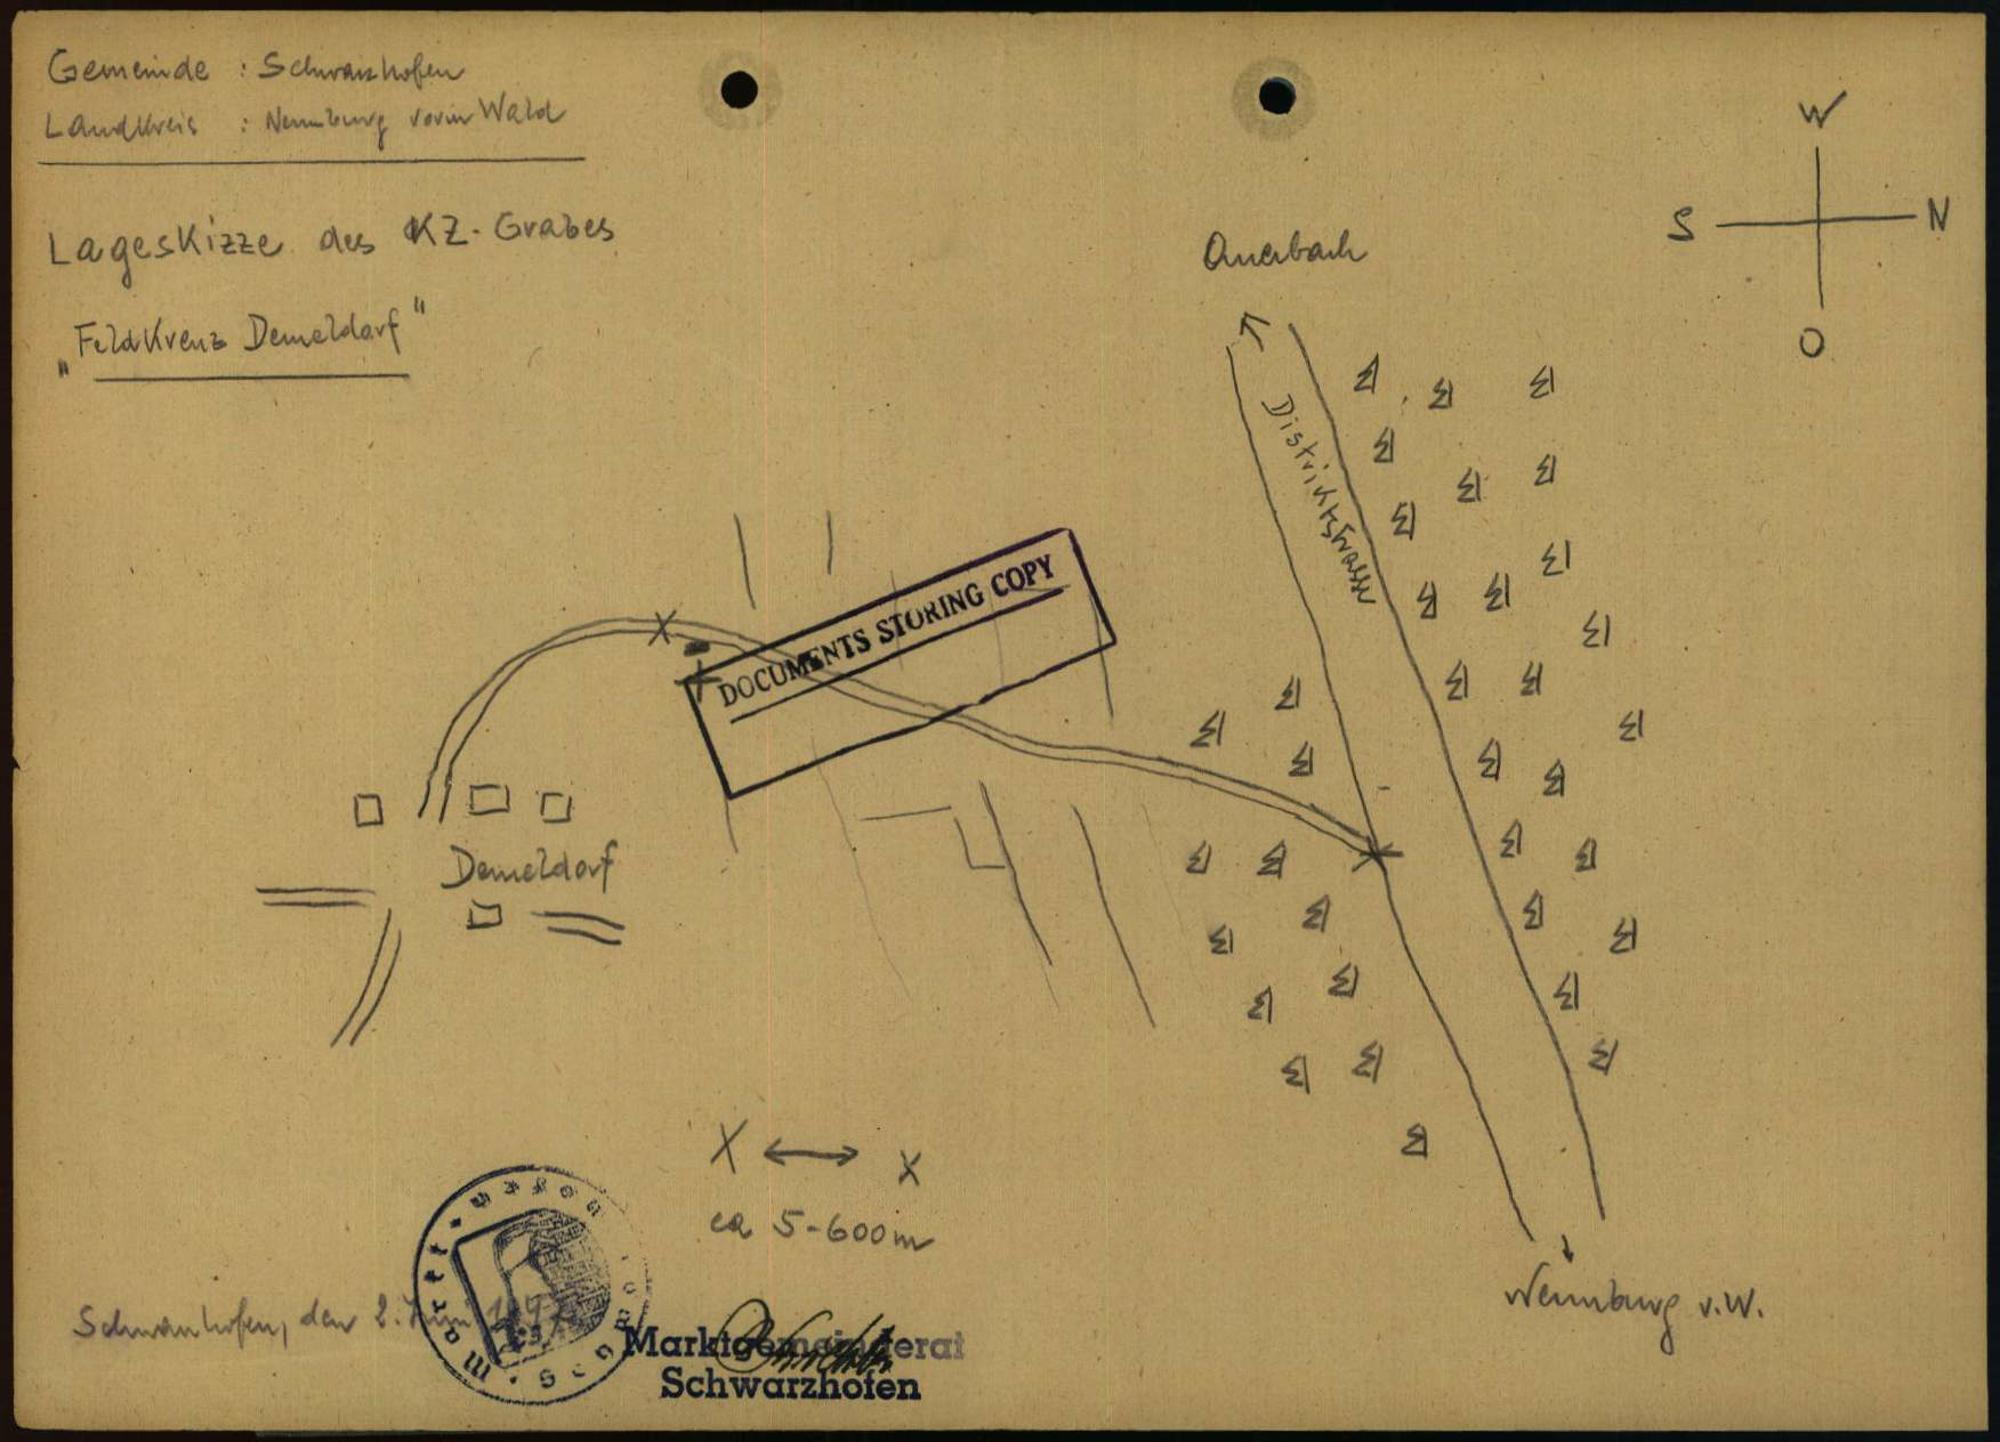 Gemeinde : Schwarzhofen
Landkreis : Neunburg vorm Wald
Lageskizze des KZ-Grabes
"Feldkreuz Demeldorf"
W
S N
O
Auerbach
Distriktsstrasse
DOCUMENTS STORING COPY
Demeldorf
X ↔ X
ca 5-600m
Neunburg v.W.
Schwarzhofen, den 2. Juni
Marktgemeinderat
Schwarzhofen